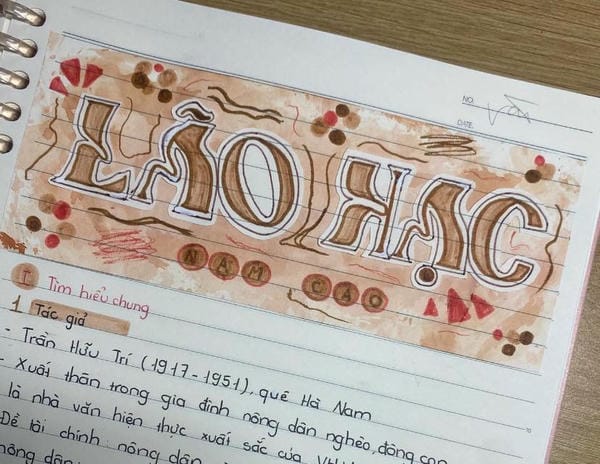 NO.
Văn
DATE
LÃO HẠC
NAM CAO
I Tìm hiểu chung
1 Tác giả
- Trần Hữu Trí (1917-1951), quê Hà Nam
- Xuất thân trong gia đình nông dân nghèo, đông con
là nhà văn hiện thực xuất sắc của
Đề tài chính: nông dân
nông dân